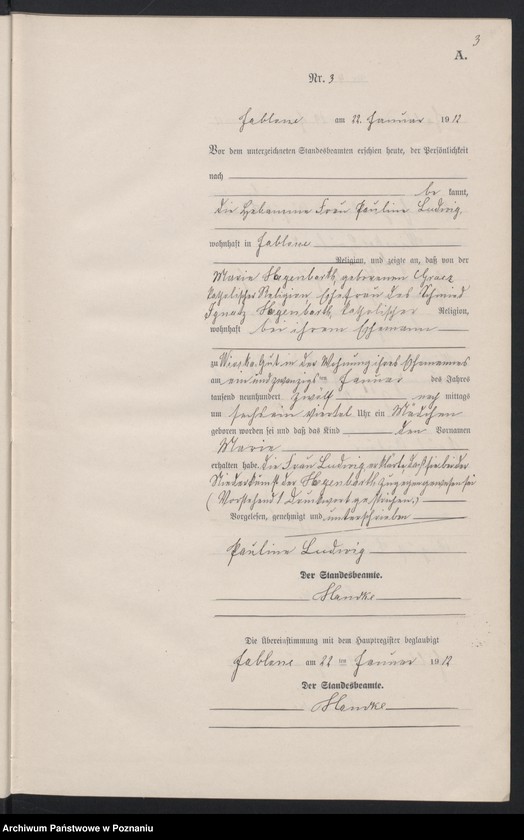 3
A.
Nr. 3
Jablone am 22. Januar 1912
Vor dem unterzeichneten Standesbeamten erschien heute, der Persönlichkeit
nach
be kannt,
die Hebamme Frau Pauline Ludwig,
wohnhaft in Jablone
Religion, und zeigte an, daß von der
Marie Hagenbarth, geborenen
katholischer Religion, Ehefrau des Schmied
Ignatz Hagenbarth, katholischer Religion,
wohnhaft bei ihrem Ehemann
zu Wioska Gut in der Wohnung ihres Ehemannes
am ein und zwanzigsten Januar des Jahres
tausend neunhundert zwölf nach mittags
um sechs ein viertel Uhr ein Mädchen
geboren worden sei und daß das Kind den Vornamen
Marie
erhalten habe. Die Frau Ludwig erklärte, daß sie bei der
Niederkunft der Hagenbarth zugegen gewesen sei
(Vorstehend 1 Druckwort gestrichen.)
Vorgelesen, genehmigt und unterschrieben
Pauline Ludwig
Der Standesbeamte.
Handke
Die Übereinstimmung mit dem Hauptregister beglaubigt
Jablone am 22 ten Januar 1912
Der Standesbeamte.
Handke
Archiwum Państwowe w Poznaniu